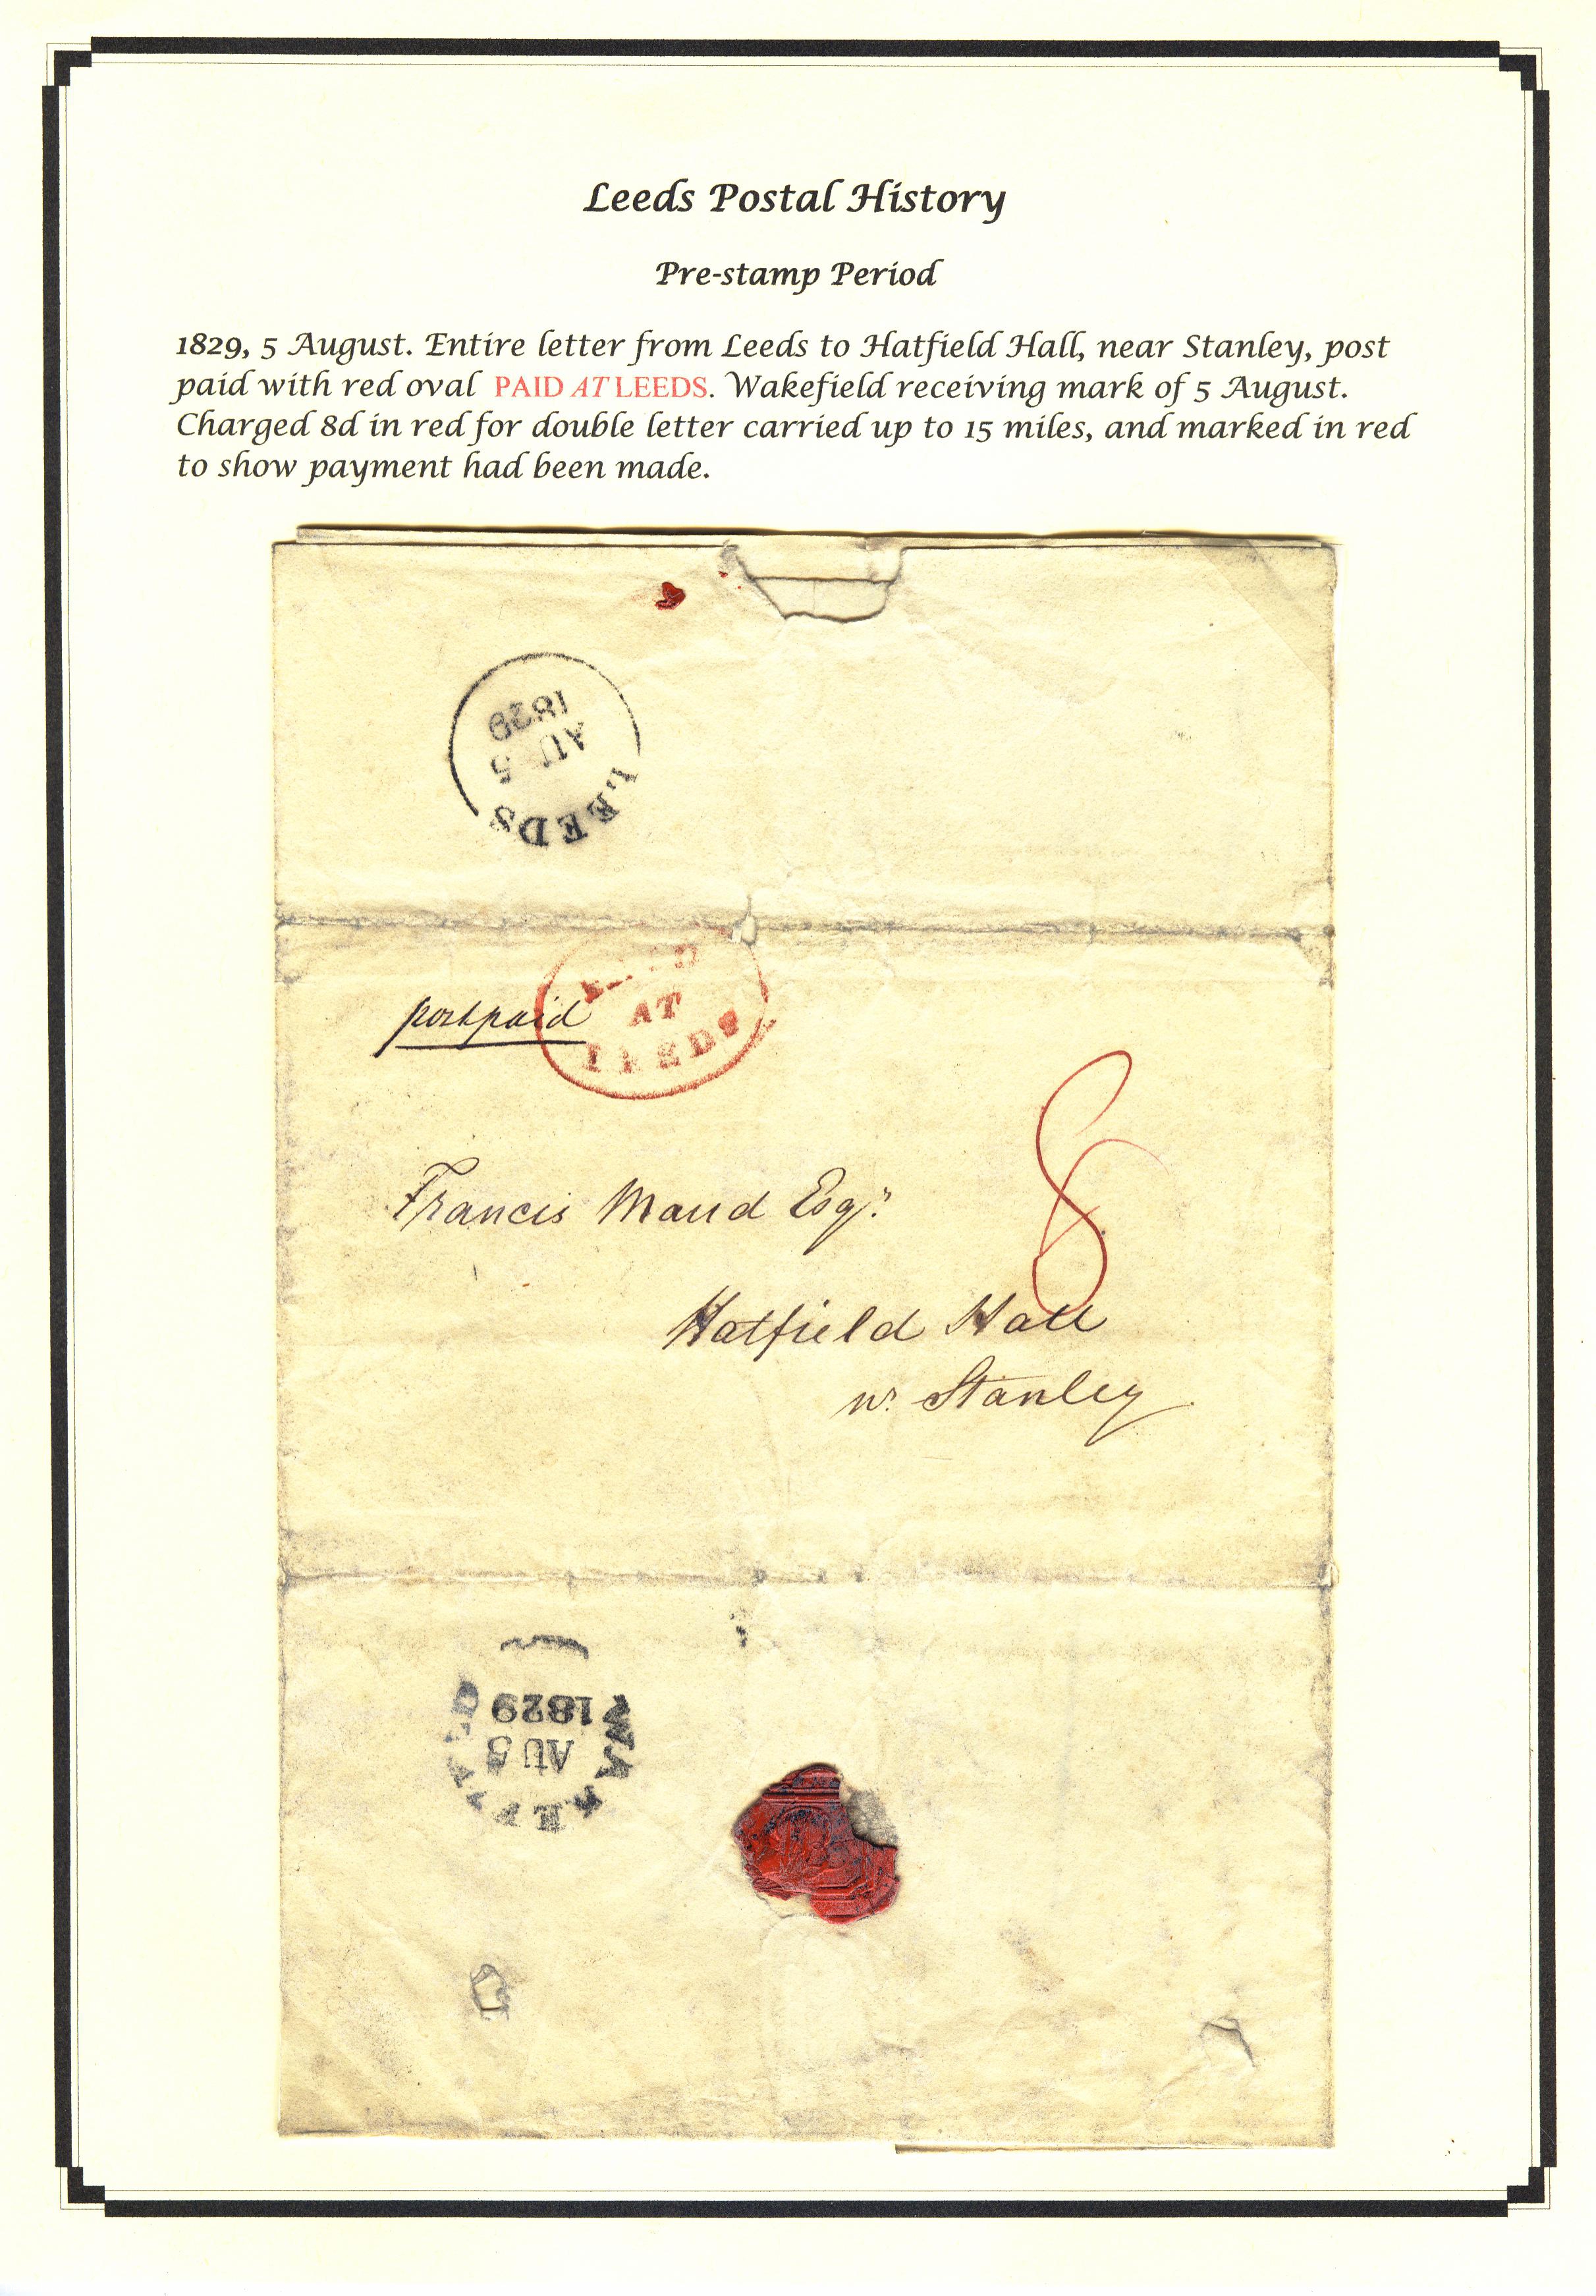 Leeds Postal History
Pre-stamp Period
1829, 5 August. Entire letter from Leeds to Hatfield Hall, near Stanley, post
paid with red oval PAID AT LEEDS. Wakefield receiving mark of 5 August.
Charged 8d in red for double letter carried up to 15 miles, and marked in red
to show payment had been made.
LEEDS
AU 5
1829
AT
LEEDS
postpaid
8
Francis Maud Esqr
Hatfield Hall
nr Stanley
WAKEFIELD
AU 5
1829